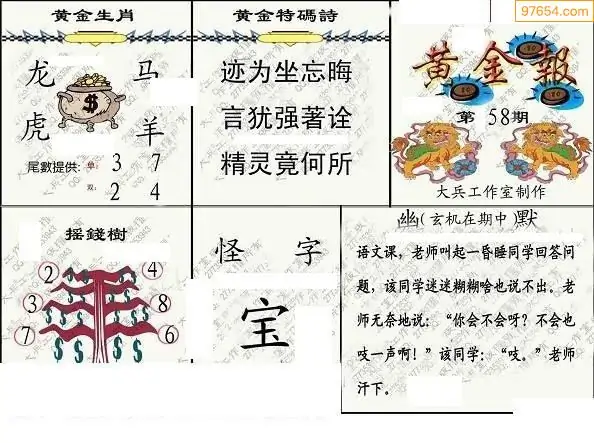 97654.com
黄金生肖
龙 马
虎 羊
尾數提供: 单: 3 7
双: 2 4
黄金特碼詩
迹为坐忘晦
言犹强著诠
精灵竟何所
黄金報
第58期
大兵工作室制作
摇錢樹
2 4
3 8
7 6
怪 字
宝
幽(玄机在期中)默
语文课，老师叫起一昏睡同学回答问
题，该同学迷迷糊糊啥也说不出。老
师无奈地说：“你会不会呀？不会也
吱一声啊！”该同学：“吱。”老师
汗下。